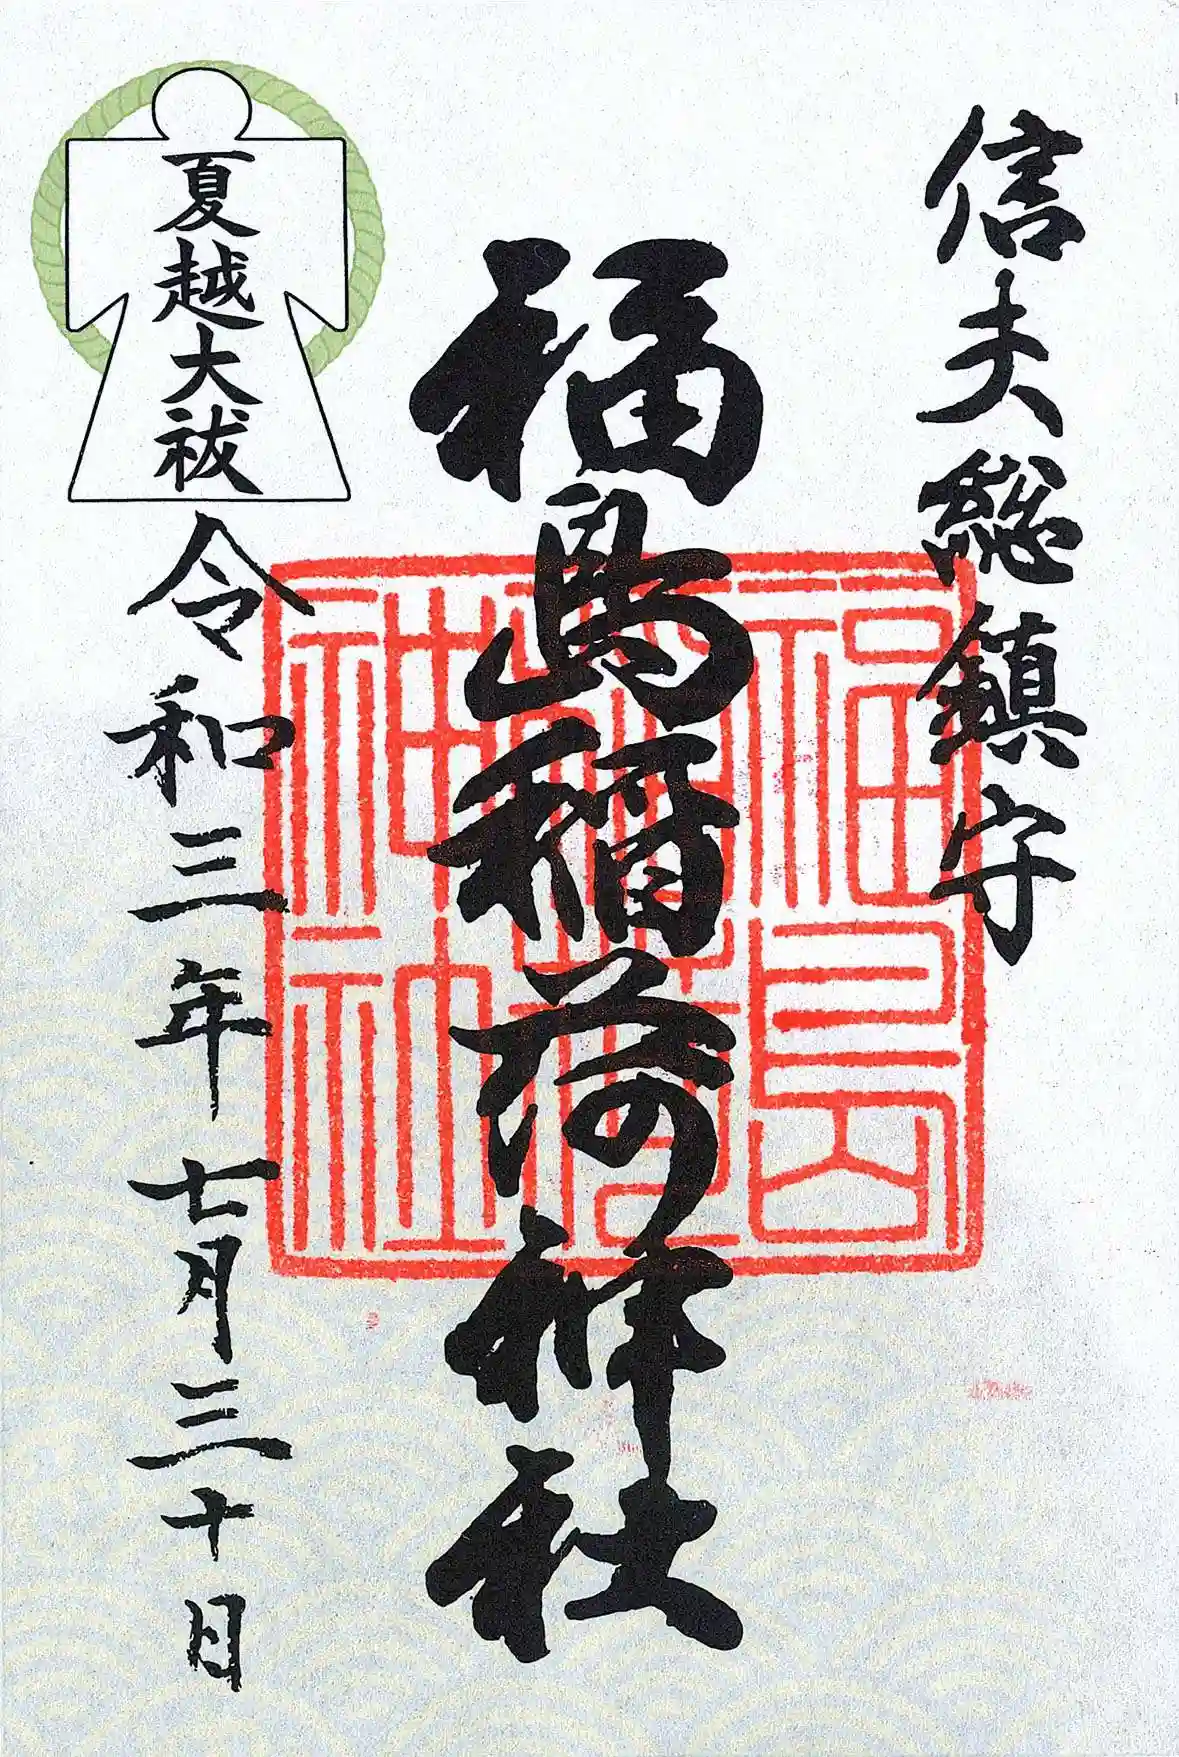 信夫総鎮守
福島稲荷神社
福島
稲荷
神社
夏越大祓
令和三年七月三十日